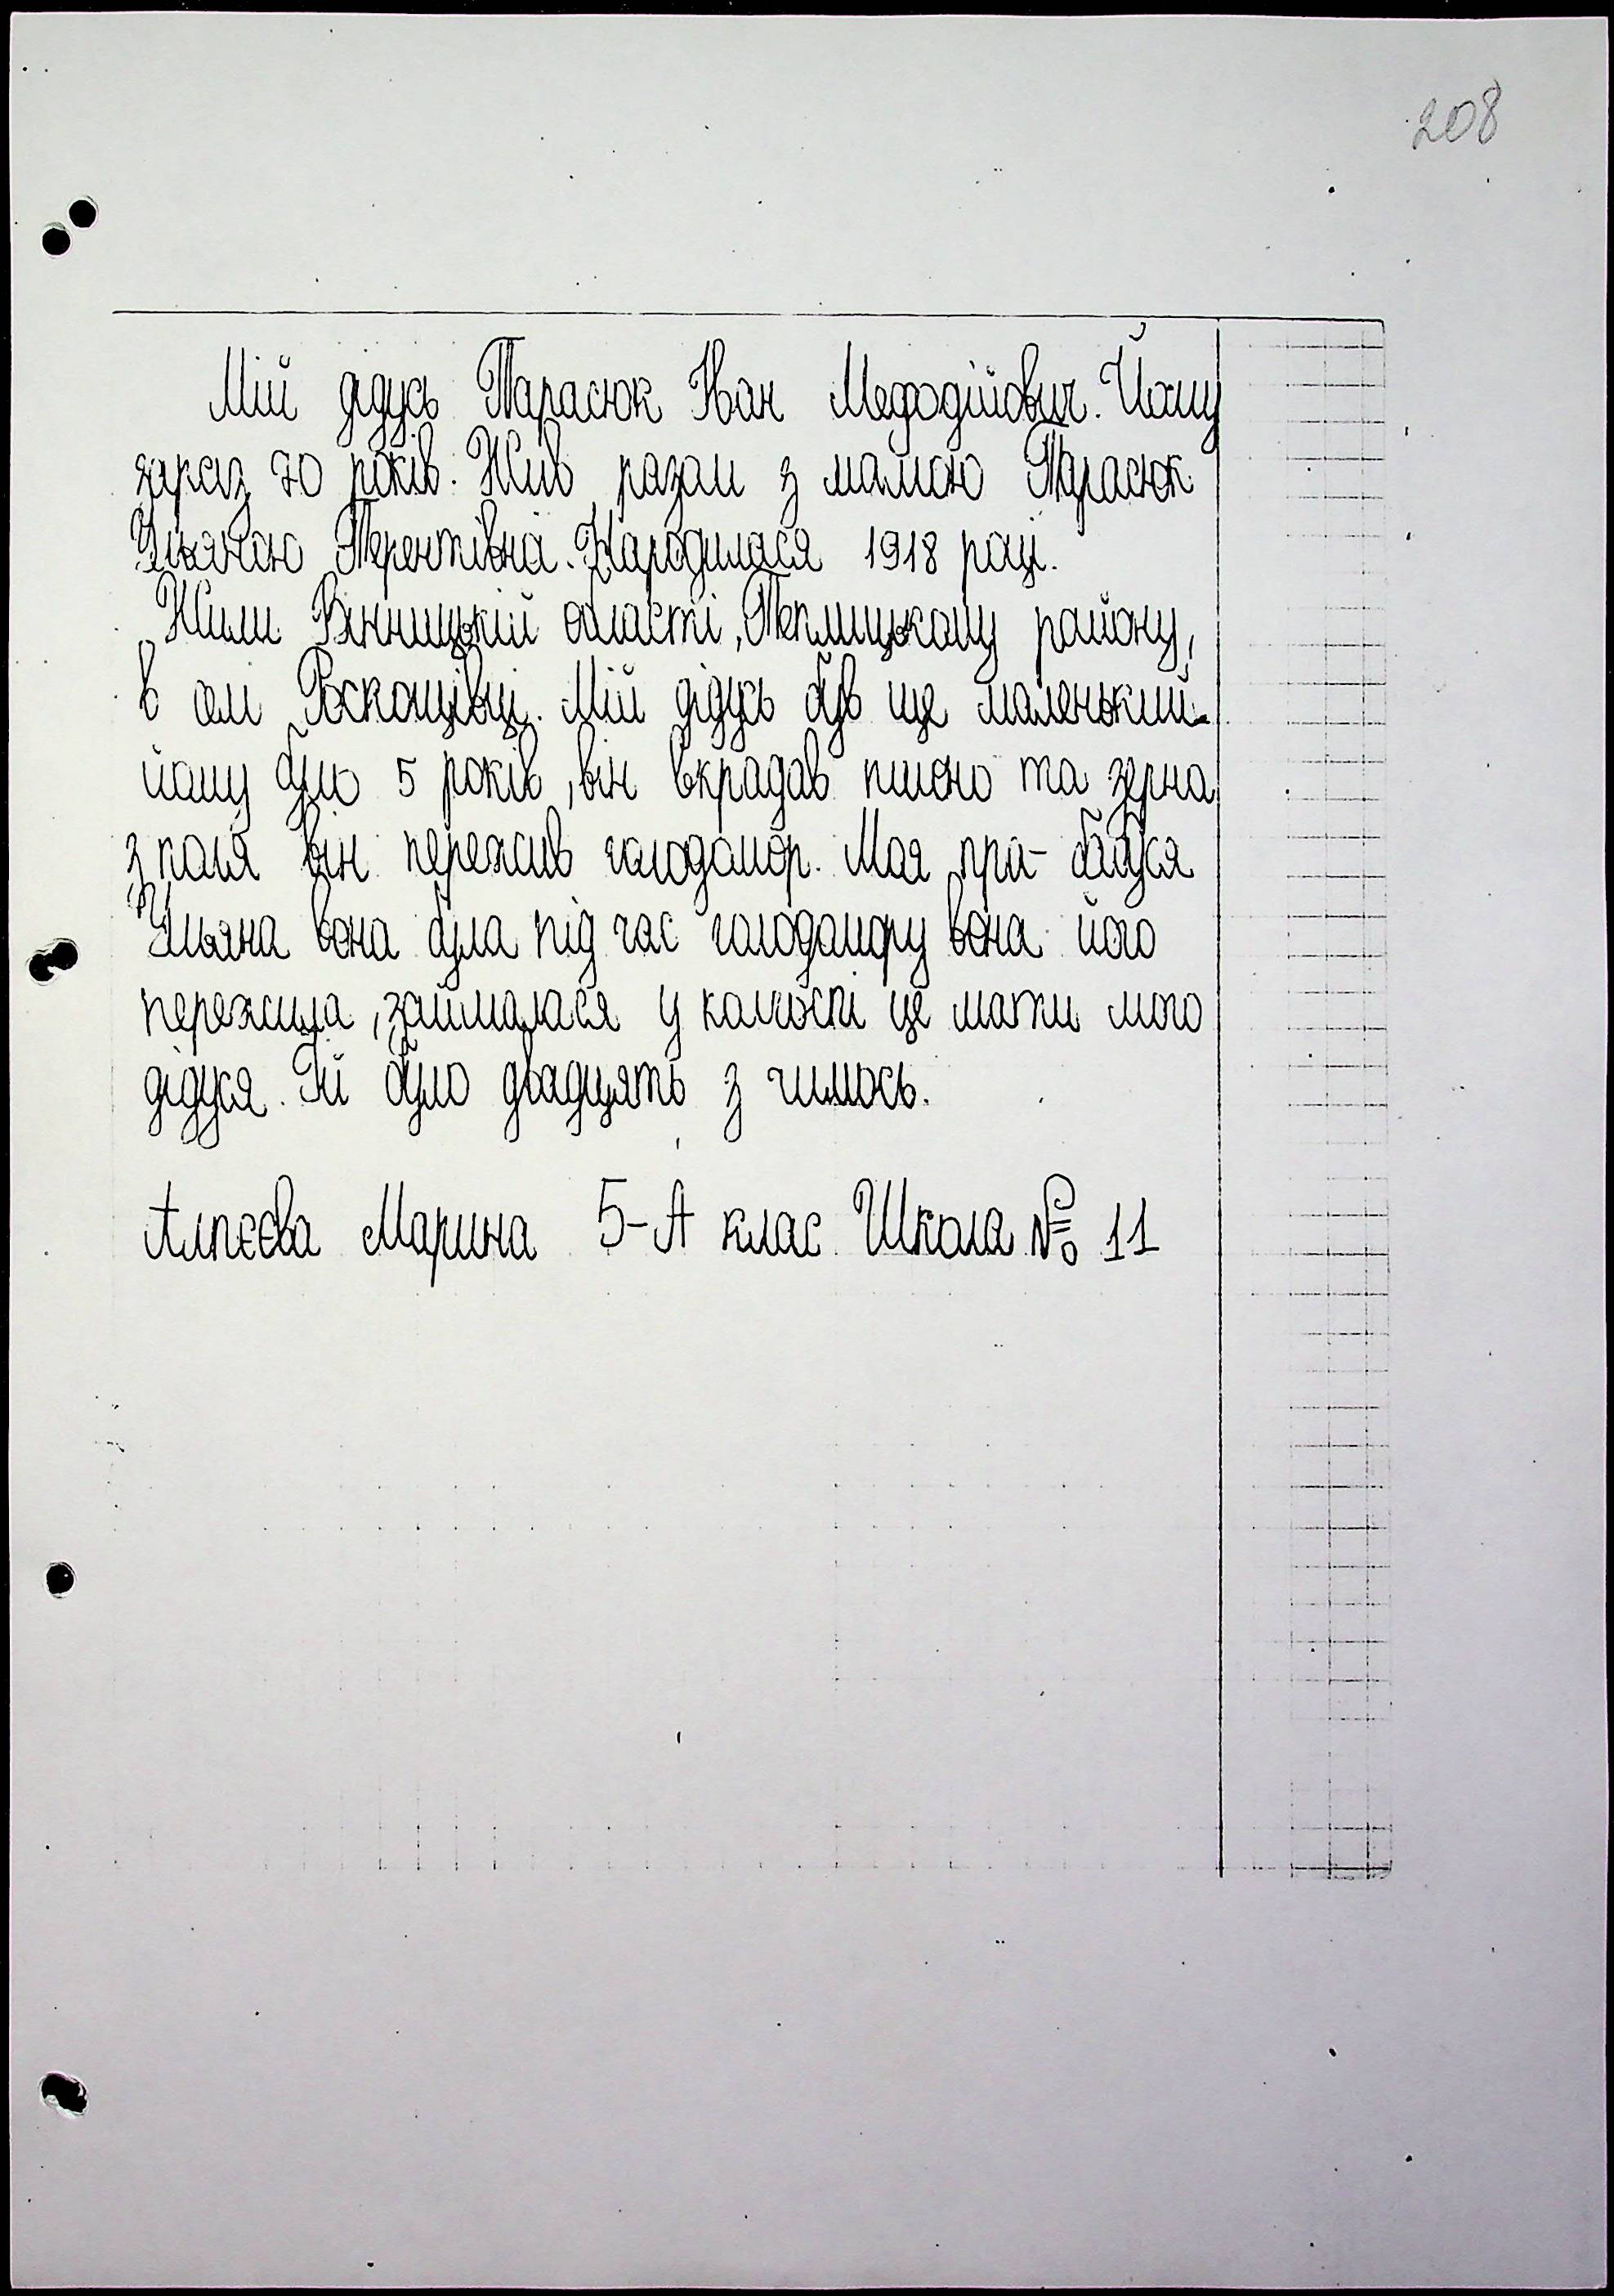 208
Мій дідусь Тарасюк Іван Мефодійович. Йому
зараз 70 років. Жив разом з мамою Тарасюк
Уляною Терентівна. Народилася 1918 році.
Жили Вінницькій області, Теплицькому району,
в селі Роскошівці. Мій дідусь був ще маленький
йому було 5 років, він вкрадав пшоно та зерна
з поля він пережив голодомор. Моя пра-бабуся
Уляна вона була під час голодомору вона його
пережила, займалася у колгоспі це мати мого
дідуся. Їй було двадцять з чимось.
Алпєєва Марина 5-А клас Школа № 11